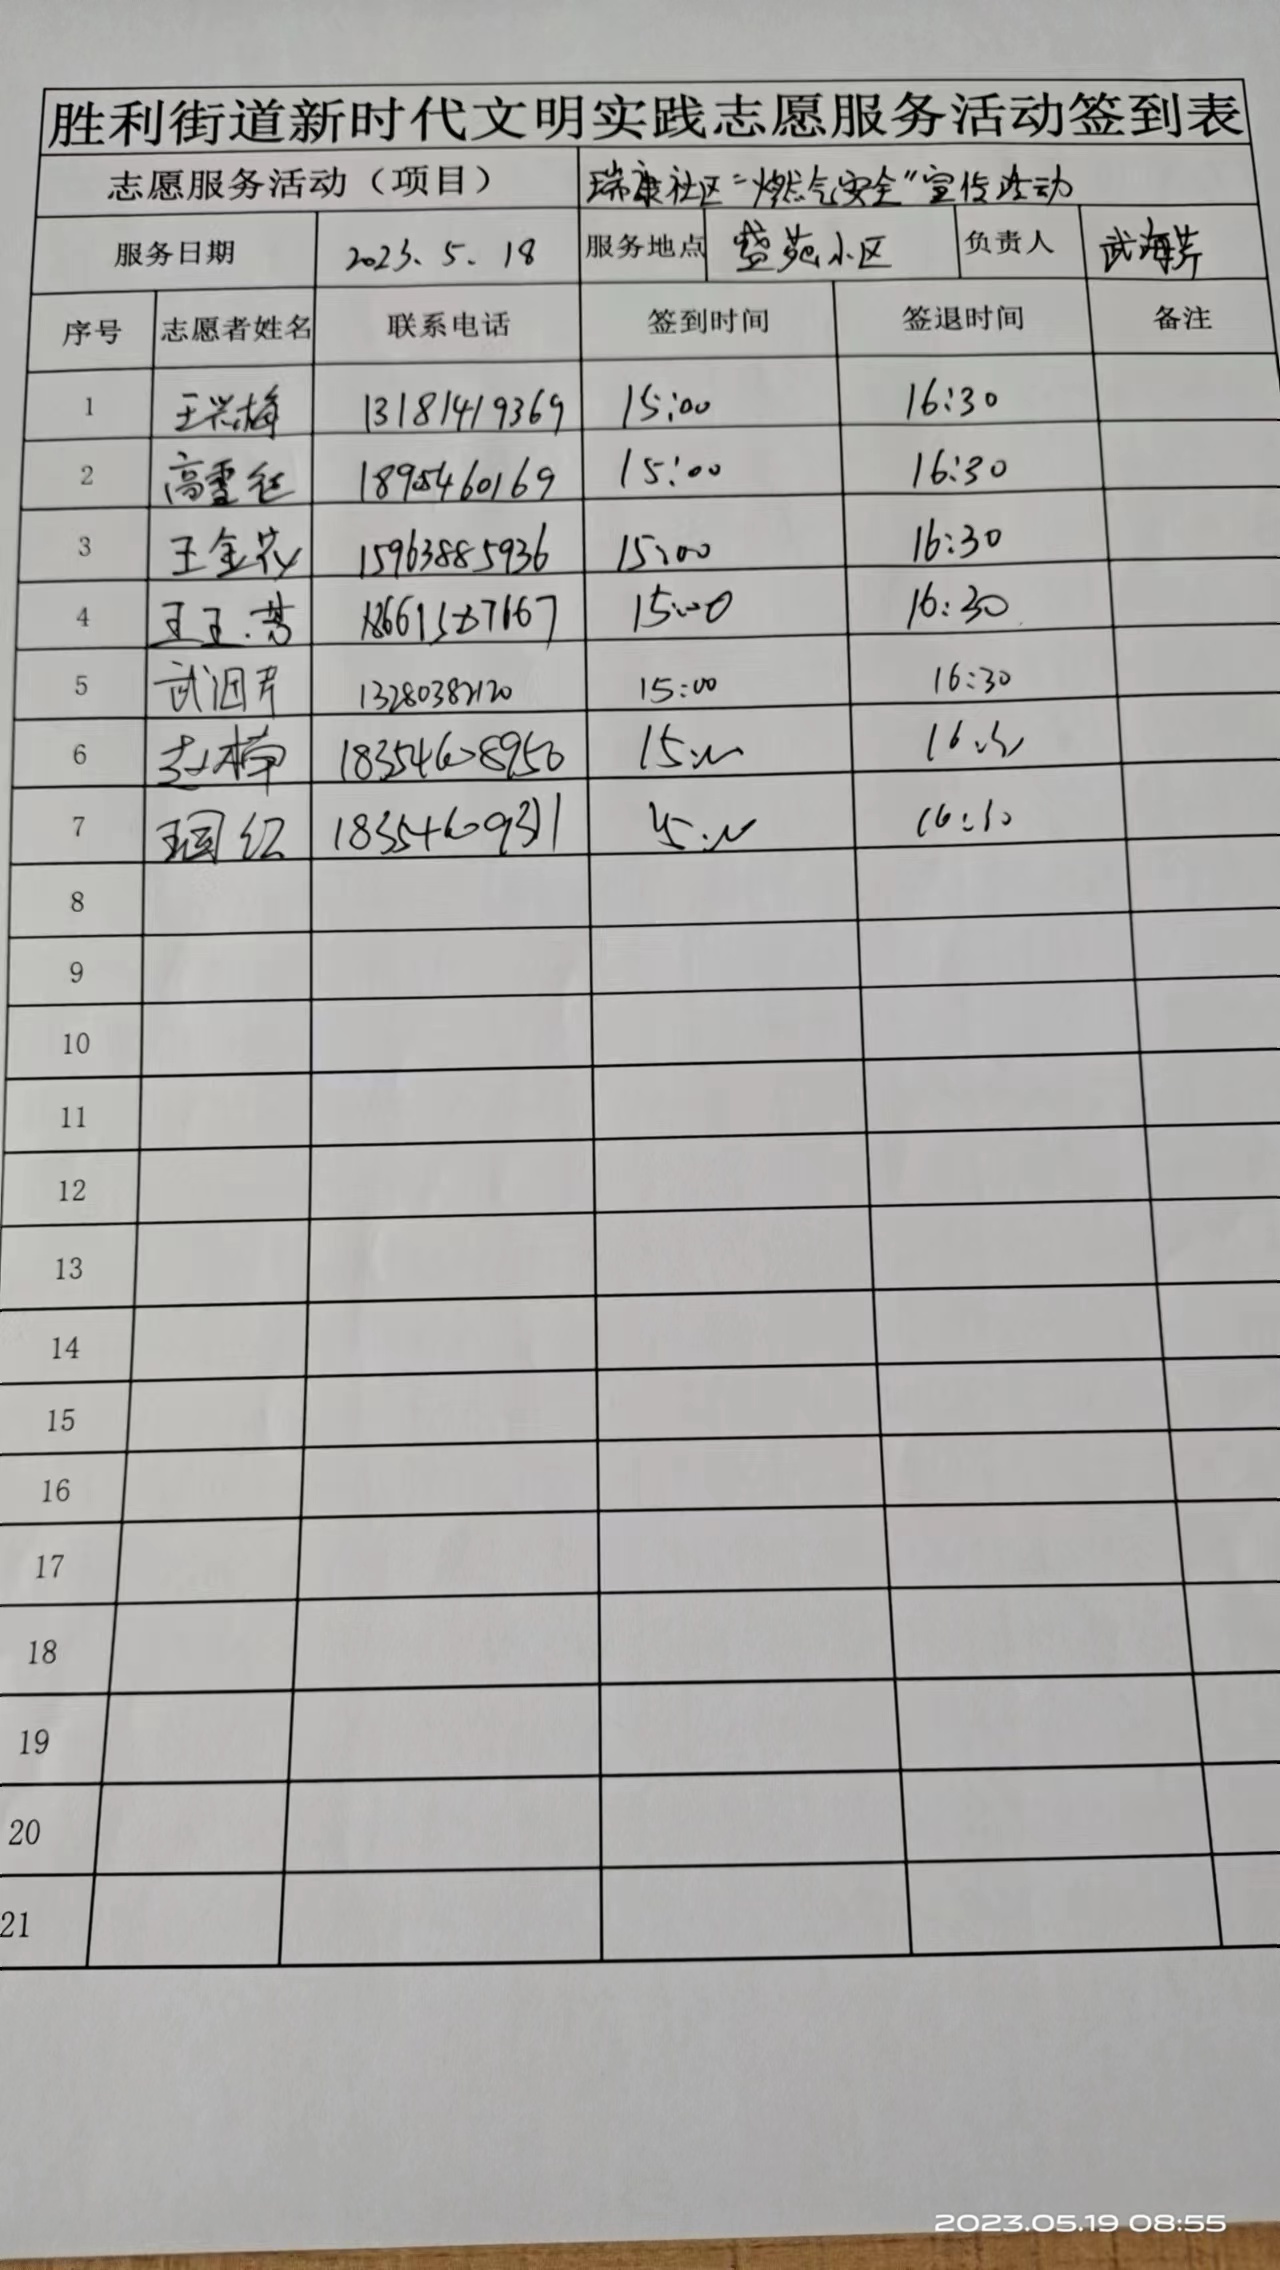 胜利街道新时代文明实践志愿服务活动签到表
志愿服务活动（项目） 瑞康社区“燃气安全”宣传活动
服务日期 2023.5.18 服务地点 盛苑小区 负责人 武海芹
序号 志愿者姓名 联系电话 签到时间 签退时间 备注
1 王兴梅 13181419369 15:00 16:30
2 高雪 18905460169 15:00 16:30
3 王金花 15963885936 15:00 16:30
4 王玉芳 18661587667 15:00 16:30
5 武 13280382120 15:00 16:30
6 赵楠 18354608950 15:00 16:30
7 王国红 18354609311 15:00 16:30
8
9
10
11
12
13
14
15
16
17
18
19
20
21
2023.05.19 08:55